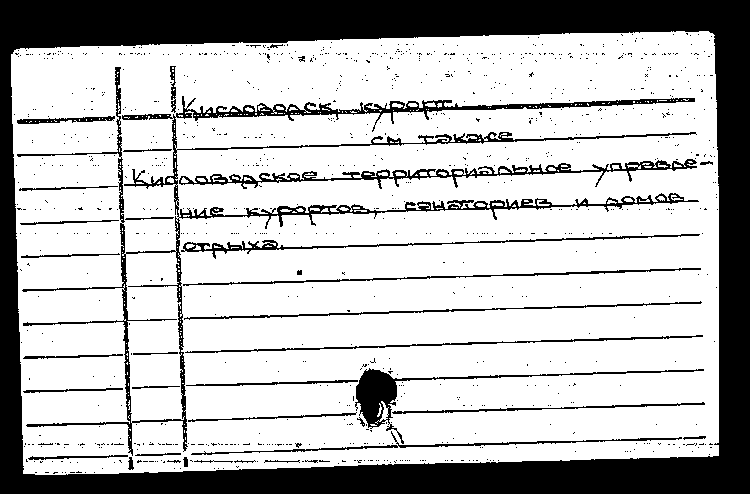 Кисловодск, курорт.
см также
Кисловодское территориальное управле-
ние курортов, санаториев и домов
отдыха.